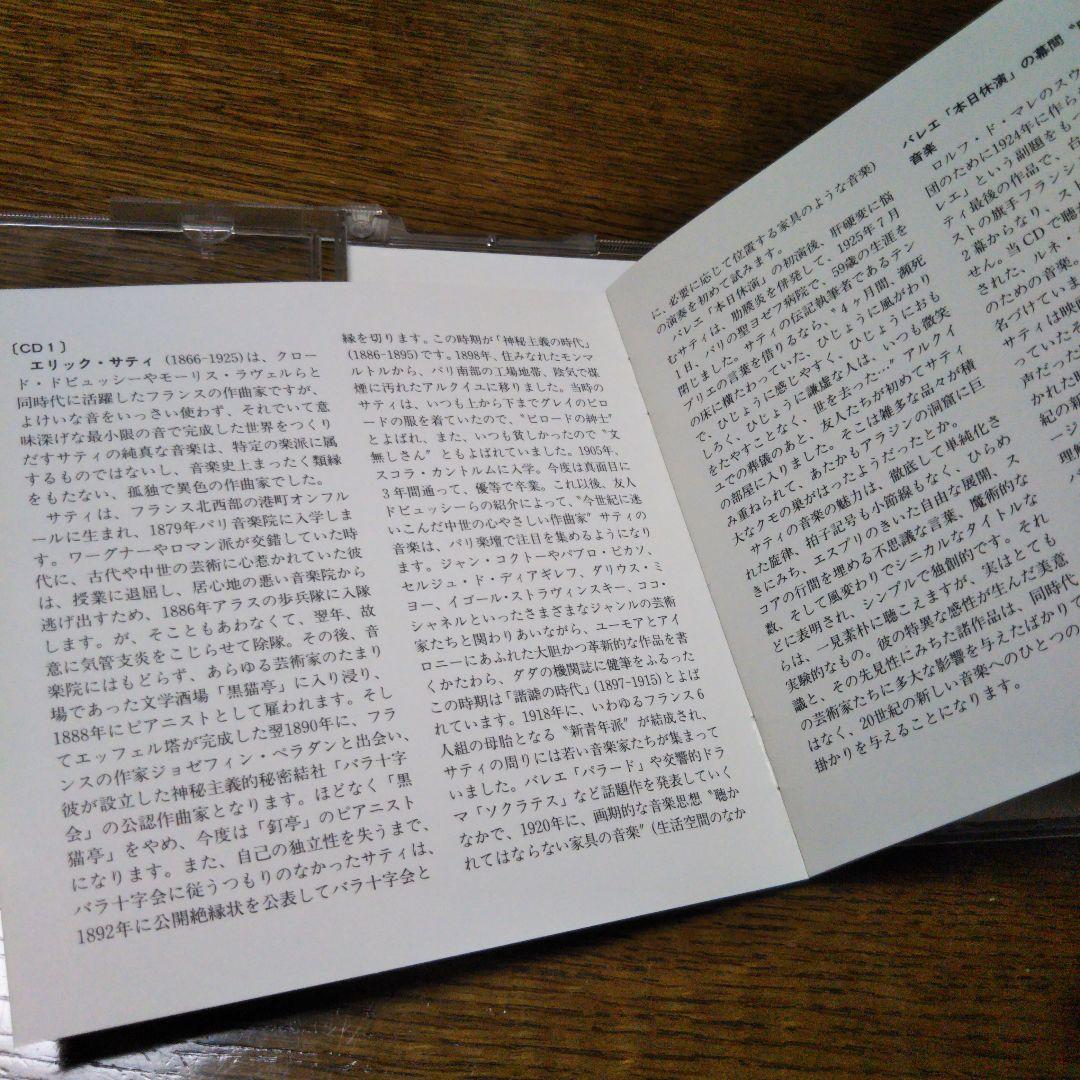 〔CD 1〕
エリック・サティ (1866-1925)は、クロー
ド・ドビュッシーやモーリス・ラヴェルらと
同時代に活躍したフランスの作曲家ですが、
よけいな音をいっさい使わず、それでいて意
味深げな最小限の音で完成した世界をつくり
だすサティの純真な音楽は、特定の楽派に属
するものではないし、音楽史上まったく類縁
をもたない、孤独で異色の作曲家でした。
サティは、フランス北西部の港町オンフル
ールに生まれ、1879年パリ音楽院に入学しま
す。ワーグナーやロマン派が交錯していた時
代に、古代や中世の芸術に心惹かれていた彼
は、授業に退屈し、居心地の悪い音楽院から
逃げ出すため、1886年アラスの歩兵隊に入隊
します。が、そこともあわなくて、翌年、故
意に気管支炎をこじらせて除隊。その後、音
楽院にはもどらず、あらゆる芸術家のたまり
場であった文学酒場「黒猫亭」に入り浸り、
1888年にピアニストとして雇われます。そし
てエッフェル塔が完成した翌1890年に、フラ
ンスの作家ジョゼフィン・ペラダンと出会い、
彼が設立した神秘主義的秘密結社「バラ十字
会」の公認作曲家となります。ほどなく「黒
猫亭」をやめ、今度は「釘亭」のピアニスト
になります。また、自己の独立性を失うまで、
バラ十字会に従うつもりのなかったサティは、
1892年に公開絶縁状を公表してバラ十字会と
縁を切ります。この時期が「神秘主義の時代」
(1886-1895)です。1898年、住みなれたモンマ
ルトルから、パリ南部の工場地帯、陰気で煤
煙に汚れたアルクイユに移りました。当時の
サティは、いつも上から下までグレイのビロ
ードの服を着ていたので、〝ビロードの紳士〟
とよばれ、また、いつも貧しかったので〝文
無しさん〟ともよばれていました。1905年、
スコラ・カントルムに入学。今度は真面目に
3年間通って、優等で卒業。これ以後、友人
ドビュッシーらの紹介によって、〝今世紀に迷
いこんだ中世の心やさしい作曲家〟サティの
音楽は、パリ楽壇で注目を集めるようになり
ます。ジャン・コクトーやパブロ・ピカソ、
セルジュ・ド・ディアギレフ、ダリウス・ミ
ヨー、イゴール・ストラヴィンスキー、ココ・
シャネルといったさまざまなジャンルの芸術
家たちと関わりあいながら、ユーモアとアイ
ロニーにあふれた大胆かつ革新的な作品を書
くかたわら、ダダの機関誌に健筆をふるった
この時期は「諧謔の時代」(1897-1915)とよば
れています。1918年に、いわゆるフランス6
人組の母胎となる〝新青年派〟が結成され、
サティの周りには若い音楽家たちが集まって
いました。バレエ「パラード」や交響的ドラ
マ「ソクラテス」など話題作を発表していく
なかで、1920年に、画期的な音楽思想〝聴か
れてはならない家具の音楽〟(生活空間のなか
に、必要に応じて位置する家具のような音楽)
の演奏を初めて試みます。
バレエ「本日休演」の初演後、肝硬変に悩
むサティは、肋膜炎を併発して、1925年7月
1日、パリの聖ヨゼフ病院で、59歳の生涯を
閉じました。サティの伝記執筆者であるテン
プリエの言葉を借りるなら、〝4ヶ月間、瀕死
の床に横たわっていた、ひじょうに風がわり
で、ひじょうに感じやすく、ひじょうにおも
しろく、ひじょうに謙虚な人は、いつも微笑
をたやすことなく、世を去った…〟アルクイ
ユでの葬儀のあと、友人たちが初めてサティ
の部屋に入りました。そこは雑多な品々が積
み重ねられて、あたかもアラジンの洞窟に巨
大なクモの巣がはったようだったとか。
サティの音楽の魅力は、徹底して単純化さ
れた旋律、拍子記号も小節線もなく、ひらめ
きにみち、エスプリのきいた自由な展開、ス
コアの行間を埋める不思議な言葉、魔術的な
数、そして風変わりでシニカルなタイトルな
どに表明され、シンプルで独創的です。それ
らは、一見素朴に聴こえますが、実はとても
実験的なもの。彼の特異な感性が生んだ美意
識と、その先見性にみちた諸作品は、同時代
の芸術家たちに多大な影響を与えたばかりで
はなく、20世紀の新しい音楽へのひとつの
掛かりを与えることになります。
バレエ「本日休演」の幕間
音楽
ロルフ・ド・マレのスウ
団のために1924年に作ら
レエ」という副題をもっ
ティ最後の作品で、台
ストの旗手フランシ
2幕からなり、スト
せん。当CDで聴
された、ルネ・
のための音楽。
名づけていま
サティは映
っていたそ
声だった
かれた映
紀の新
ージ
理解
バ